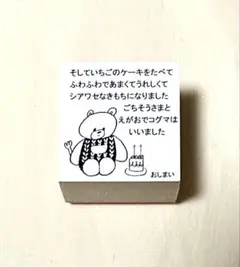 そしていちごのケーキをたべて
ふわふわであまくてうれしくて
シアワセなきもちになりました
ごちそうさまと
えがおでコグマは
いいました
おしまい